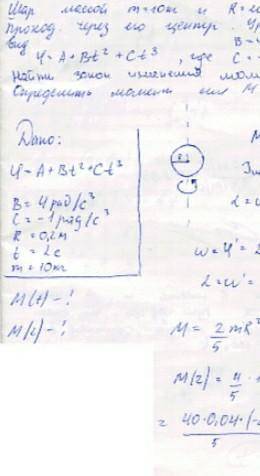 Шар массой m=10кг и R=20
проход. через его центр. Ур
вид B=4
φ=A+Bt²+Ct³, где C=-
Найти закон изменения мом
Определить момент сил M
Дано:
φ=A+Bt²+Ct³
B=4рад/с³
C=-1рад/с³
R=0,2м
t=2c
m=10кг
M(t)-?
M(2)-?
R
ω=φ'=2
=ω'=
M=2/5 mR²
M(2)=4/5·1
=40·0,04·(-2
5